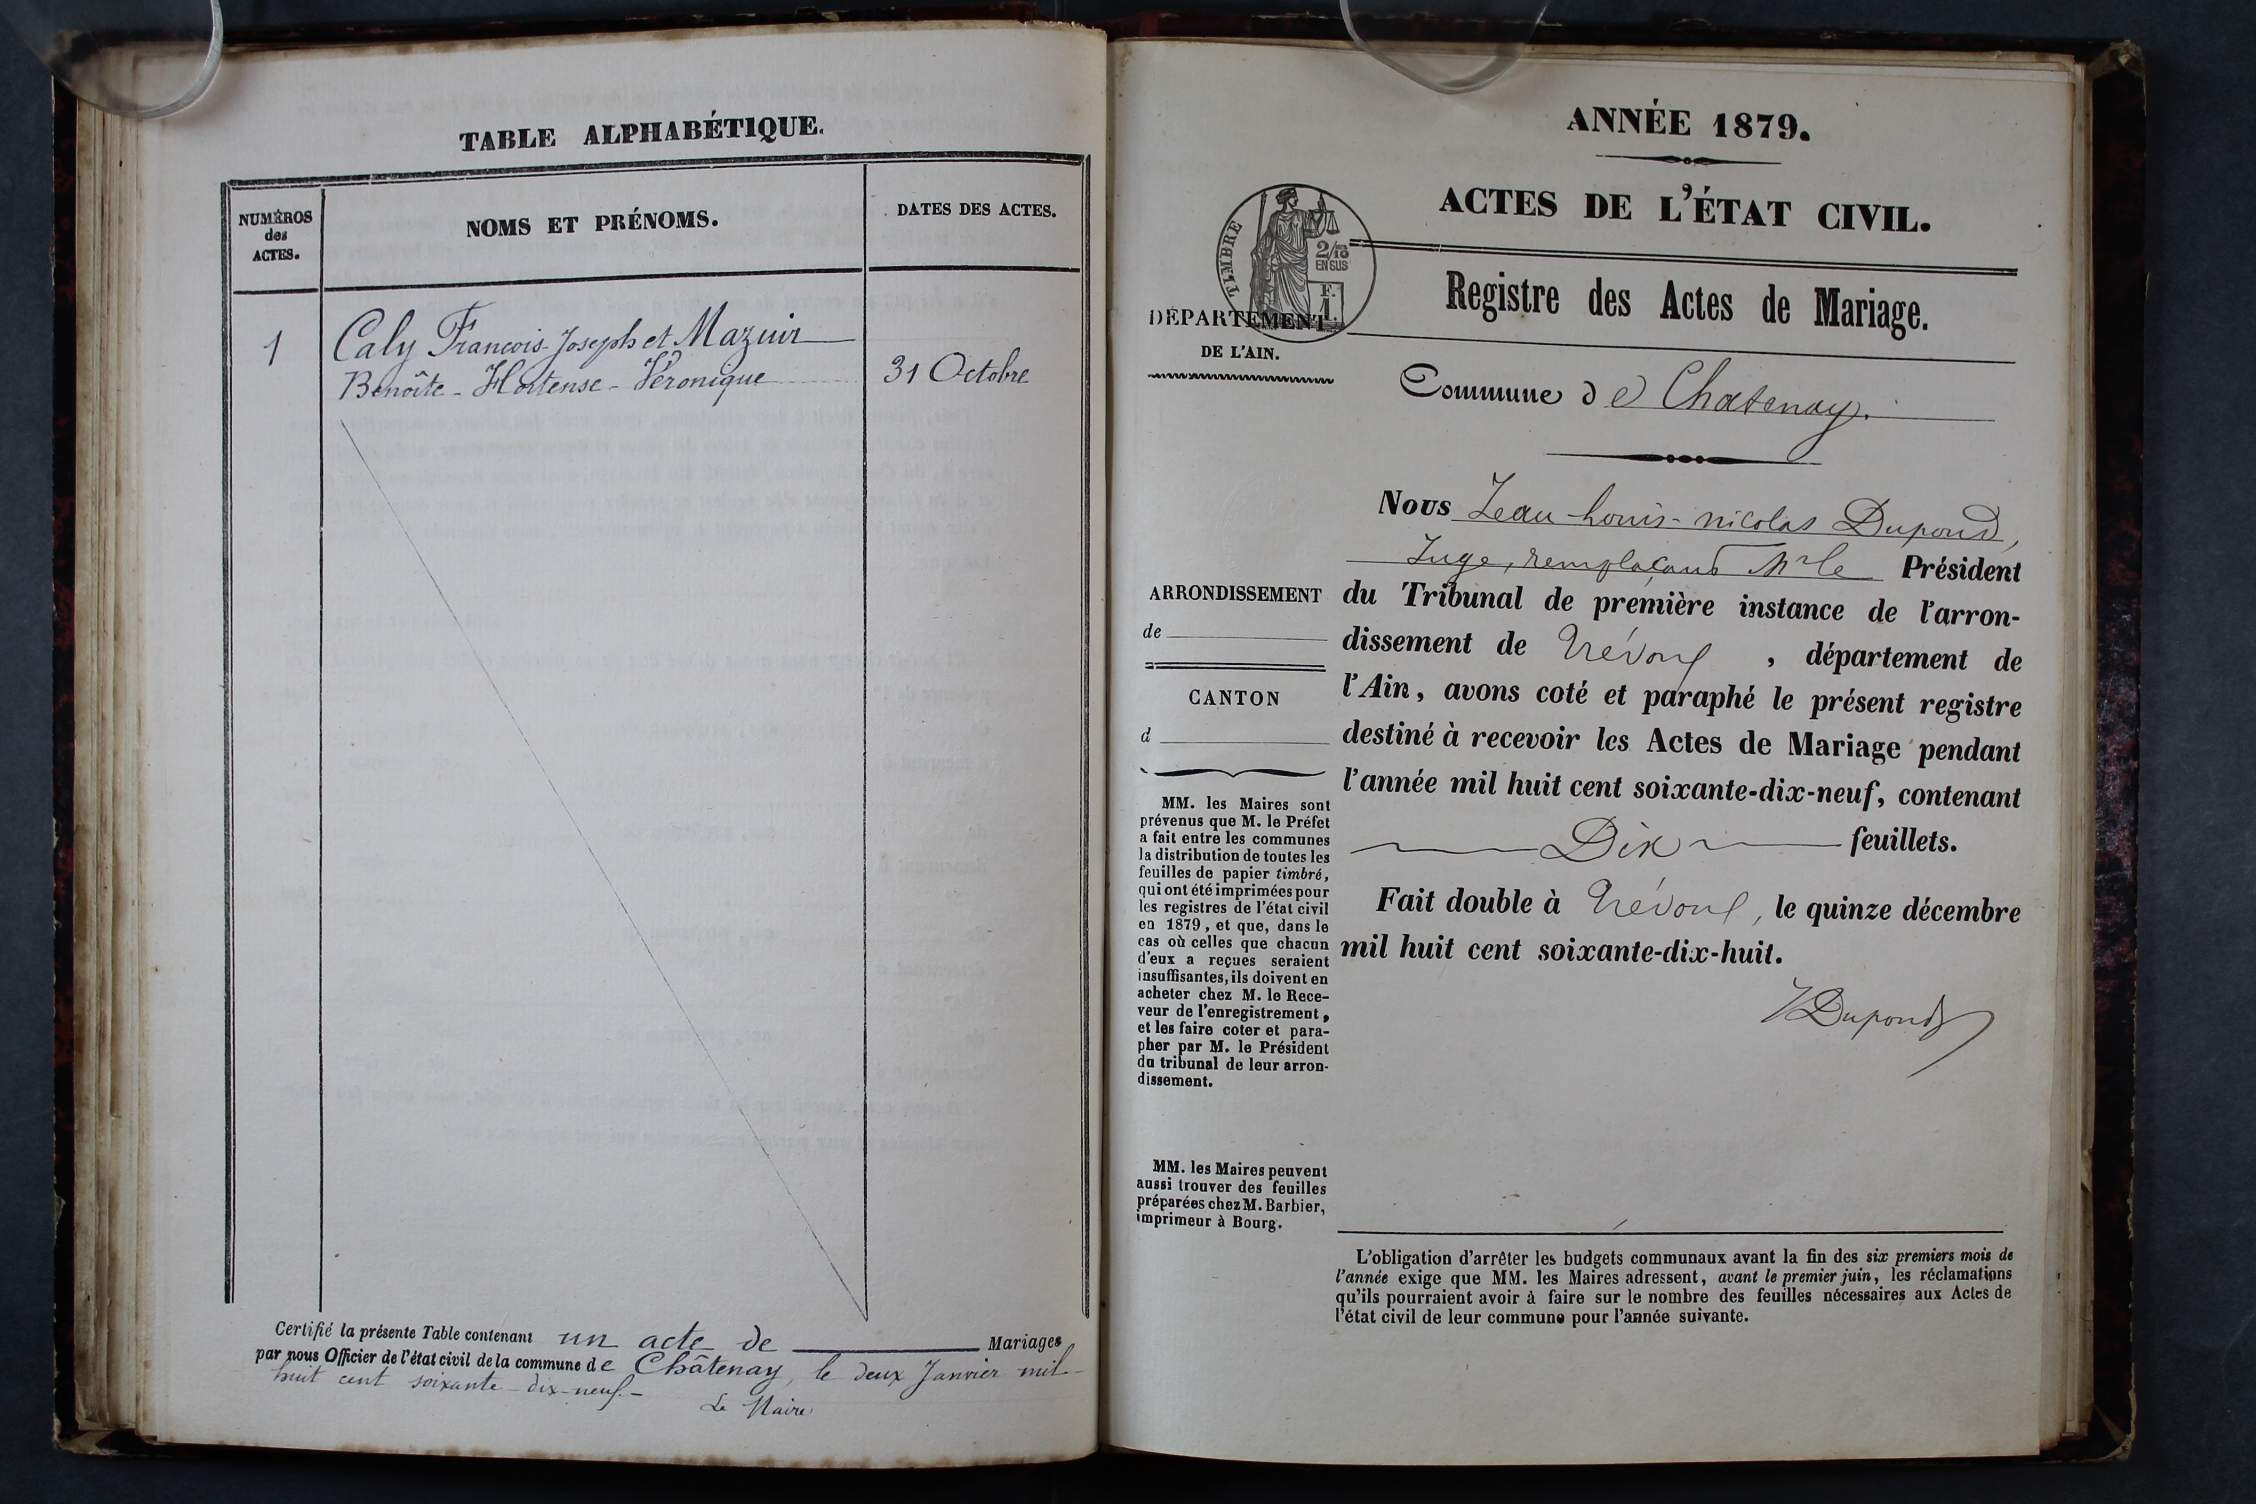 TABLE ALPHABÉTIQUE.
NUMÉROS
des
ACTES.
NOMS ET PRÉNOMS.
DATES DES ACTES.
1
Caly François-Joseph et Mazuir
Benoîte - Hortense - Véronique
31 Octobre
Certifié la présente Table contenant un acte de Mariages
par nous Officier de l'état civil de la commune de Châtenay, le deux Janvier mil
huit cent soixante-dix-neuf.-
Le Maire
ANNÉE 1879.
ACTES DE L'ÉTAT CIVIL.
TIMBRE
2/10
EN SUS
F.
1.
Registre des Actes de Mariage.
DÉPARTEMENT
DE L'AIN.
Commune de Chatenay.
Nous Jean-Louis-nicolas Dupond,
Juge, remplaçant Mr le Président
du Tribunal de première instance de l'arron-
dissement de Trévoux, département de
l'Ain, avons coté et paraphé le présent registre
destiné à recevoir les Actes de Mariage pendant
l'année mil huit cent soixante-dix-neuf, contenant
Dix feuillets.
Fait double à Trévoux, le quinze décembre
mil huit cent soixante-dix-huit.
JDupond
ARRONDISSEMENT
de
CANTON
d
MM. les Maires sont
prévenus que M. le Préfet
a fait entre les communes
la distribution de toutes les
feuilles de papier timbré,
qui ont été imprimées pour
les registres de l'état civil
en 1879, et que, dans le
cas où celles que chacun
d'eux a reçues seraient
insuffisantes, ils doivent en
acheter chez M. le Rece-
veur de l'enregistrement,
et les faire coter et para-
pher par M. le Président
du tribunal de leur arron-
dissement.
MM. les Maires peuvent
aussi trouver des feuilles
préparées chez M. Barbier,
imprimeur à Bourg.
L'obligation d'arrêter les budgets communaux avant la fin des six premiers mois de
l'année exige que MM. les Maires adressent, avant le premier juin, les réclamations
qu'ils pourraient avoir à faire sur le nombre des feuilles nécessaires aux Actes de
l'état civil de leur commune pour l'année suivante.